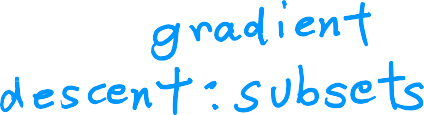 gradient
descent: subsets